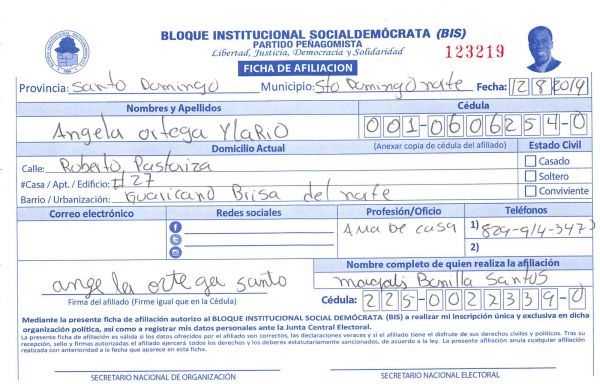 BLOQUE INSTITUCIONAL SOCIALDEMÓCRATA (BIS)
PARTIDO PEÑAGOMISTA
Libertad, Justicia, Democracia y Solidaridad
123219
FICHA DE AFILIACION
Provincia: Santo Domingo Municipio: Sto Domingo norte Fecha: 12 8 2019
Nombres y Apellidos Cédula
Angela ortega Ylario 001-0606254-0
Domicilio Actual (Anexar copia de cédula del afiliado) Estado Civil
Calle: Roberto Pastoriza Casado
#Casa / Apt. / Edificio: #27 Soltero
Barrio / Urbanización: Guaricano Brisa del norte Conviviente
Correo electrónico Redes sociales Profesión/Oficio Teléfonos
Ama de casa 1) 829-914-347
2)
Nombre completo de quien realiza la afiliación
angela ortega santo magalis Bonilla Santos
Firma del afiliado (Firme igual que en la Cédula) Cédula: 225-0022339-0
Mediante la presente ficha de afiliación autorizo al BLOQUE INSTITUCIONAL SOCIAL DEMÓCRATA (BIS) a realizar mi inscripción única y exclusiva en dicha
organización política, así como a registrar mis datos personales ante la Junta Central Electoral.
La presente ficha de afiliación es válida si los datos ofrecidos por el afiliado son correctos, las declaraciones veraces y si el afiliado tiene el disfrute de sus derechos civiles y políticos. Tras su
recepción, sello y firmas autorizadas el afiliado ejercerá todos los derechos y los deberes estatutariamente sancionados, de acuerdo a la ley. La presente afiliación anula cualquier afiliación
realizada con anterioridad a la fecha que aparece en esta ficha.
SECRETARIO NACIONAL DE ORGANIZACIÓN SECRETARIO NACIONAL ELECTORAL